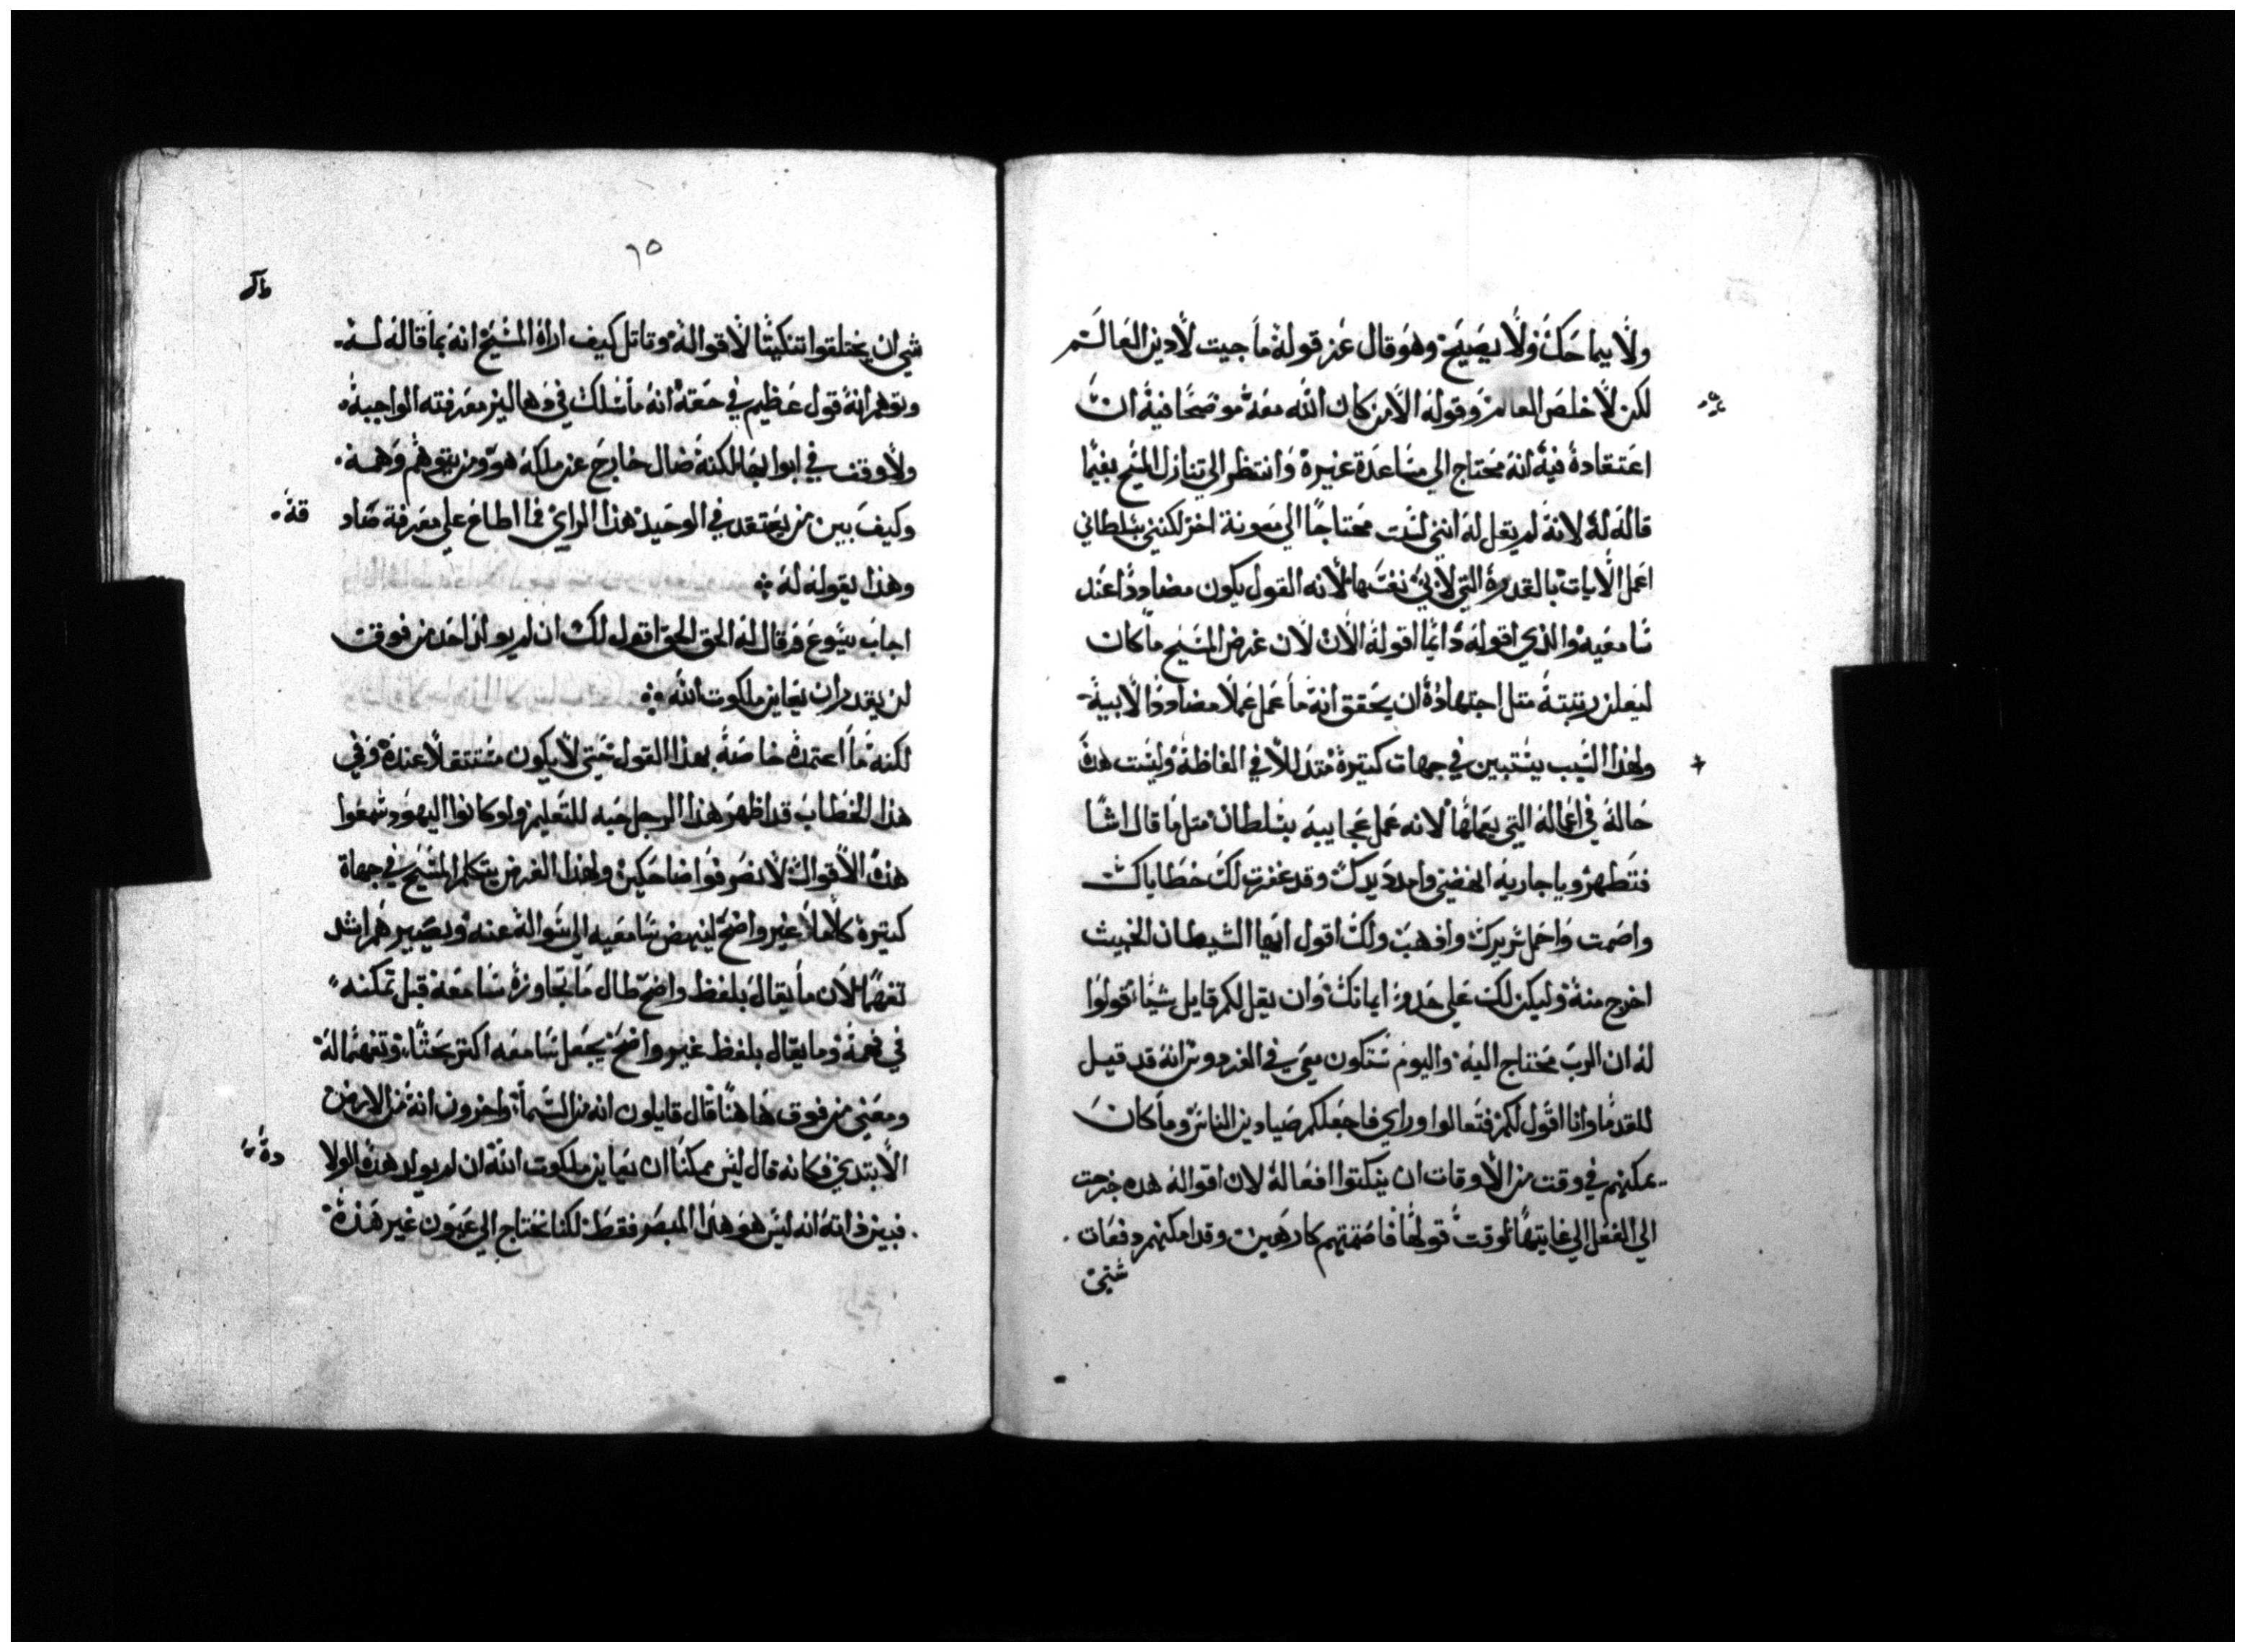 ولا يماحك ولا يصيح وهو قال عن قوله ما جيت لادين العالم
لكن لاخلص العالم وقوله الا من كان الله معه موضحا فيه ان
اعتقاده فيه انه محتاج الي مساعدة غيره وانتظر الي تنازل المسيح بغيما
قاله له لانه لم يقل له انني لست محتاجا الي معونة اخر لكنني بسلطاني
اعمل الايات بالقدرة التي لابي نفسها لانه القول يكون مضاددا عند
سامعيه والذي اقوله دايما اقوله الان لان غرض المسيح ما كان
ليعلن رتبته مثل اجتهاده ان يحقق انه ما عمل عملا مضاددا لابيه
ولهذا السبب يستبين في جهات كتيرة متدللا في الفاظه وليست هذه
حاله في اعماله التي يعملها لانه عمل عجايبه بسلطان متل ما قال اشا
فتطهر ويا جاريه انهضي وامدد يدك وقد غفرت لك خطاياك
واصمت واحمل سريرك واذهب ولك اقول ايها الشيطان الخبيث
اخرج منه وليكن لك علي حذو ايمانك وان يقل لكم قايل شيا قولوا
له ان الرب محتاج اليه واليوم ستكون معي في الفردوس انه قد قيل
للقدما وانا اقول لكم فتعالوا وراي فاجعلكم صيادين الناس وما كان
يمكنهم في وقت من الاوقات ان ينكتوا افعاله لان اقواله هذه خرجت
الي الفعل الي غايتها لوقت قولها فاصمتهم كارهين وقد امكنهم دفعات
شتي
٦٥
شي ان يختلقوا تنكيتا لاقواله وقاتل كيف اراه المسيح انه بما قاله له
وتوهم انه قول عظيم في حقه انه ما سلك في دهاليز معرفته الواجبة
ولا وقف في ابوابها لكنه ضال خارج عن ملكه هو ومن يتوهم وهمه
وكيف بين من يعتقد في الوحيد هذا الراي فما اطاع علي معرفة صاد
قة
وهذا بقوله له
اجاب يسوع فقال له الحق الحق اقول لك ان لم يولد احد من فوق
لن يقدر ان يعاين ملكوت الله
لكنه ما اعتمده خاصة بهذا القول حتي لا يكون مستتقلا عنده وفي
هذا الخطاب قد اظهر هذا الرجل حبه للتعليم ولو كانوا اليهود سمعوا
هذه الاقوال لانصرفوا ضاحكين ولهذا الغرض يتكلم المسيح في جهاة
كتيرة كلاما غير واضح لينهض سامعيه الي سواله عنه ويصيرهم اشد
تفهما لان ما يقال بلفظ واضح طال ما تجاوزه سامعه قبل تمكنه
في فهمه وما يقال بلفظ غير واضح يجعل سامعه اكتر بحثا وتفهما له
ومعني من فوق هاهنا قال قايلون انه من السما واخرون انه من الابتدي
الابتدي فكانه قال ليس ممكنا ان يعاين ملكوت الله ان لم يولد هذه الولا
دة
فبين ذاته انه ليس هو هذا المبصر فقط لكنا نحتاج الي عيون غير هذه